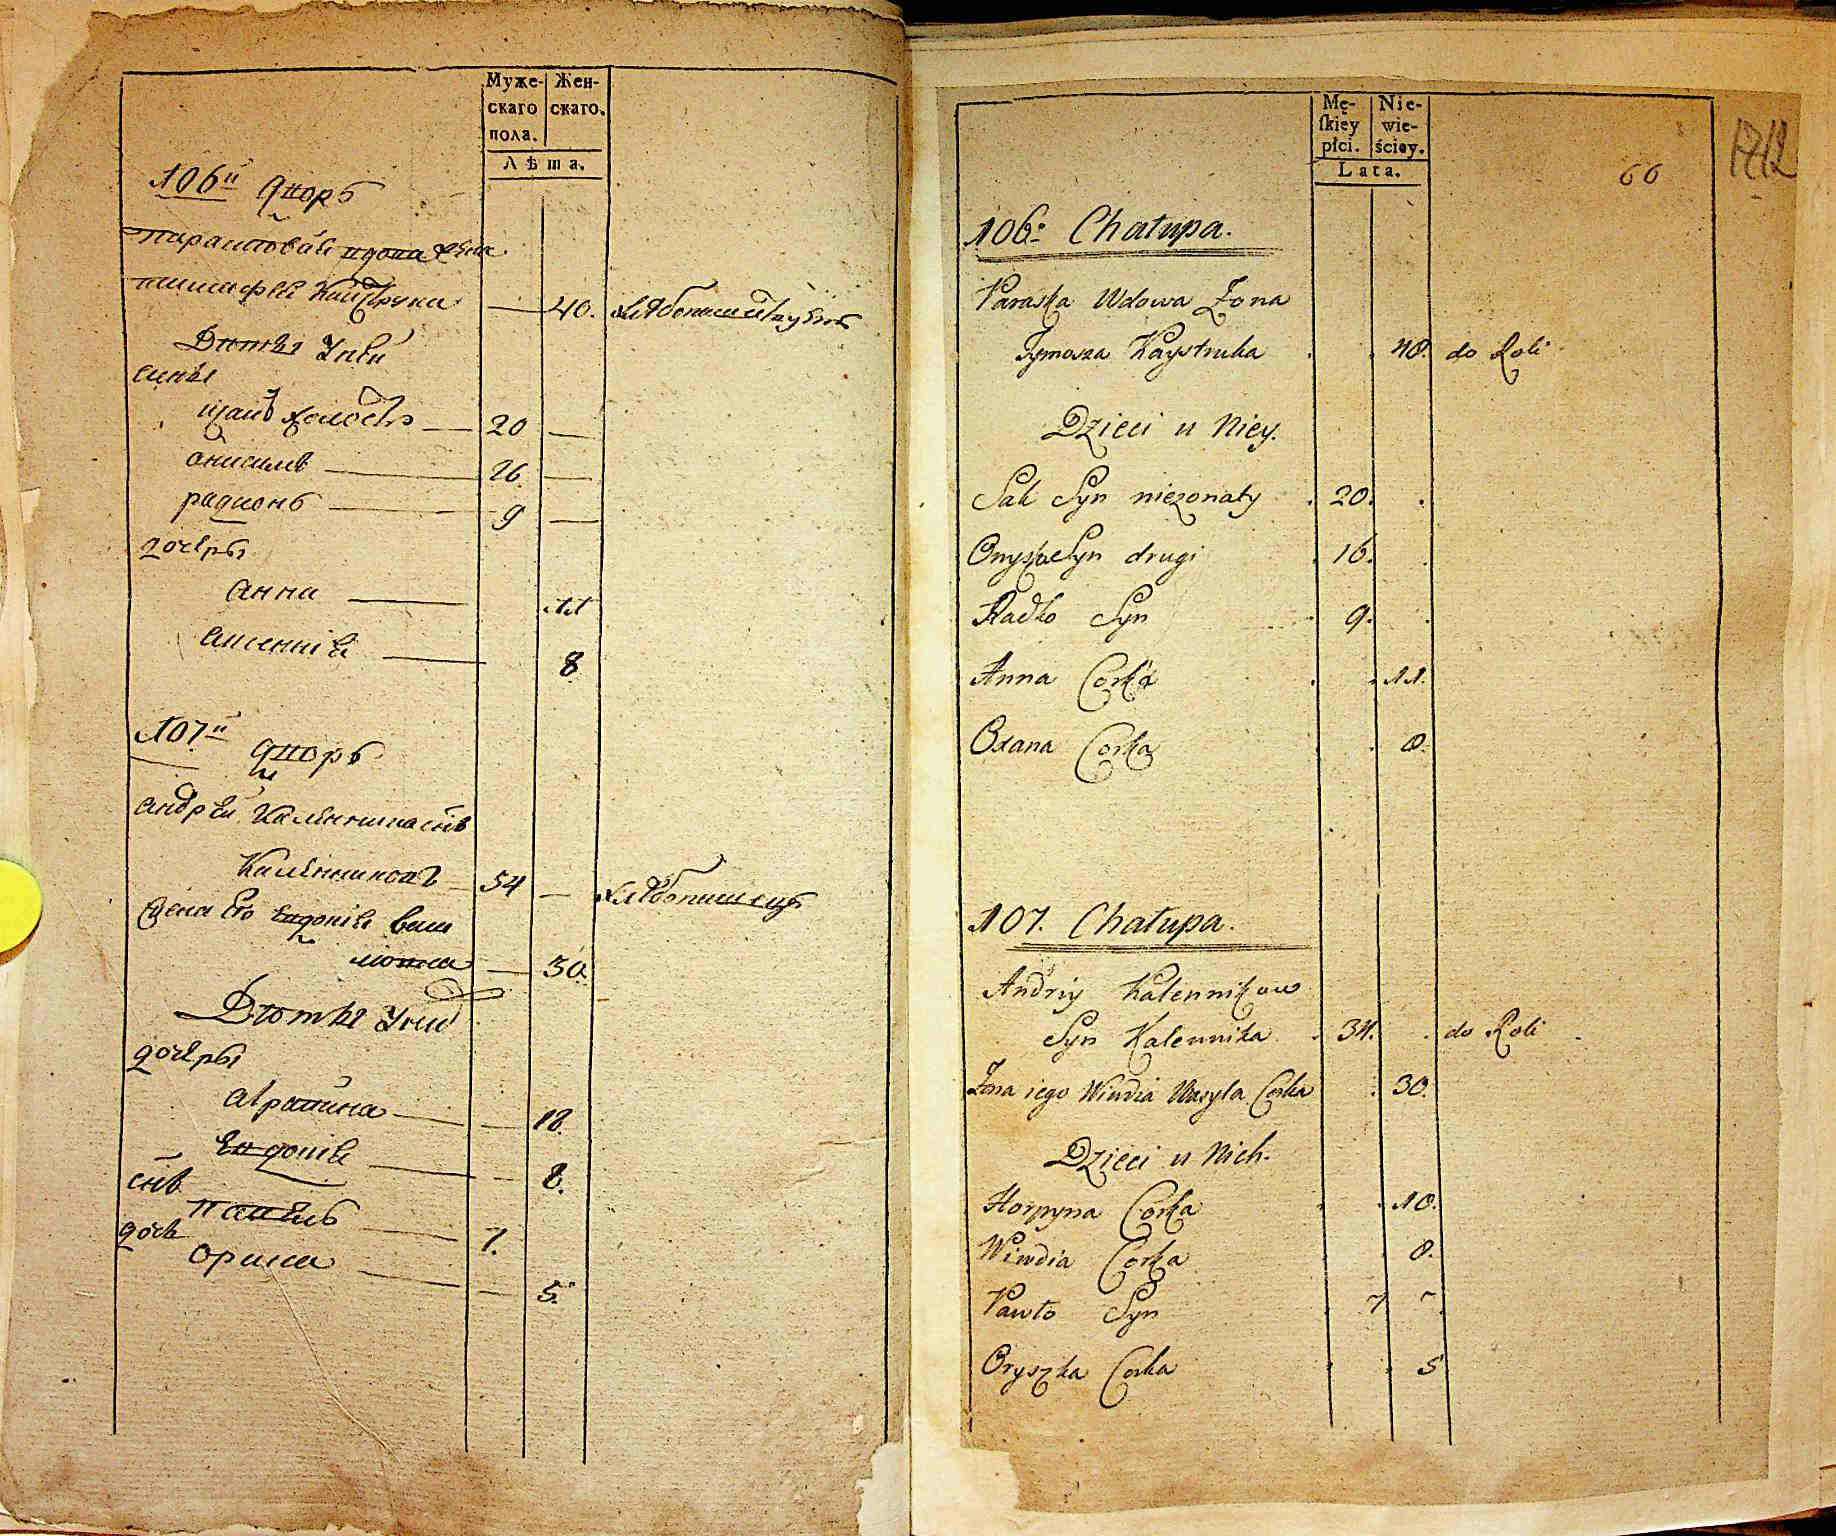 Муже-
скаго
пола.
Жен-
скаго.
Лѣта.
106й дворъ
тимофѣя Кайструка — 40.
Дѣтѣ У ней
сины
20 —
онисимъ — 16 —
радионъ — 9 —
дочеры
анна — 11
8
107й дворъ
андрѣй
54 —
жена Его
30.
Дѣтѣ У них
дочеры
10.
8.
снъ
павелъ — 7.
дочь
орина — 5.
Mę-
ſkiey
płci.
Nie-
wie-
ściey.
Lata.
66
1712
106: Chałupa.
Paraska Wdowa Żona
Tymosza Kaystruka . . 40. do Roli
Dzieci u Niey.
Sak Syn nieżonaty . 20. .
Onyszko Syn drugi . 16. .
Radko Syn . 9. .
Anna Corka . . 11.
Oxana Corka . . 8.
107. Chałupa.
Andriy Kalennikow
Syn Kalennika . 34. . do Roli
Żona iego Wiwdia Wasyla Corka . 30.
Dzieci u Nich.
Horpyna Corka . . 10.
Wiwdia Corka . 8.
Pawło Syn . 7 .
Oryszka Corka . . 5